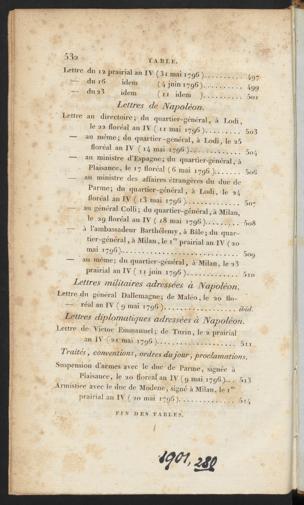 532 TABLE.
Lettre du 12 prairial an IV (31 mai 1796).......... 497
— du 16 idem (4 juin 1796)......... 499
— du 23 idem (11 idem )......... 501
Lettres de Napoléon.
Lettre au directoire; du quartier-général, à Lodi,
le 22 floréal an IV (11 mai 1796)......... 503
— au même; du quartier-général, à Lodi, le 25
floréal an IV (14 mai 1796)............ 504
— au ministre d'Espagne; du quartier-général, à
Plaisance, le 17 floréal (6 mai 1796)...... 506
— au ministre des affaires étrangères du duc de
Parme; du quartier-général, à Lodi, le 24
floréal an IV (13 mai 1796)............. 507
— au général Colli; du quartier-général, à Milan,
le 29 floréal an IV (18 mai 1796)........ 508
— à l'ambassadeur Barthélemy, à Bâle; du quar-
tier-général, à Milan, le 1er prairial an IV (20
mai 1796)............................ 509
— au même; du quartier-général, à Milan, le 23
prairial an IV (11 juin 1796)............ 510
Lettres militaires adressées à Napoléon.
Lettre du général Dallemagne; de Maléo, le 20 flo-
— réal an IV (9 mai 1796)................ ibid.
Lettres diplomatiques adressées à Napoléon.
Lettre de Victor Emmanuel; de Turin, le 2 prairial
an IV (21 mai 1796)................... 511
Traités, conventions, ordres du jour, proclamations.
Suspension d'armes avec le duc de Parme, signée à
Plaisance, le 20 floréal an IV (9 mai 1796)... 513
Armistice avec le duc de Modène, signé à Milan, le 1er
prairial an IV (20 mai 1796)............. 514
FIN DES TABLES.
1901, 280